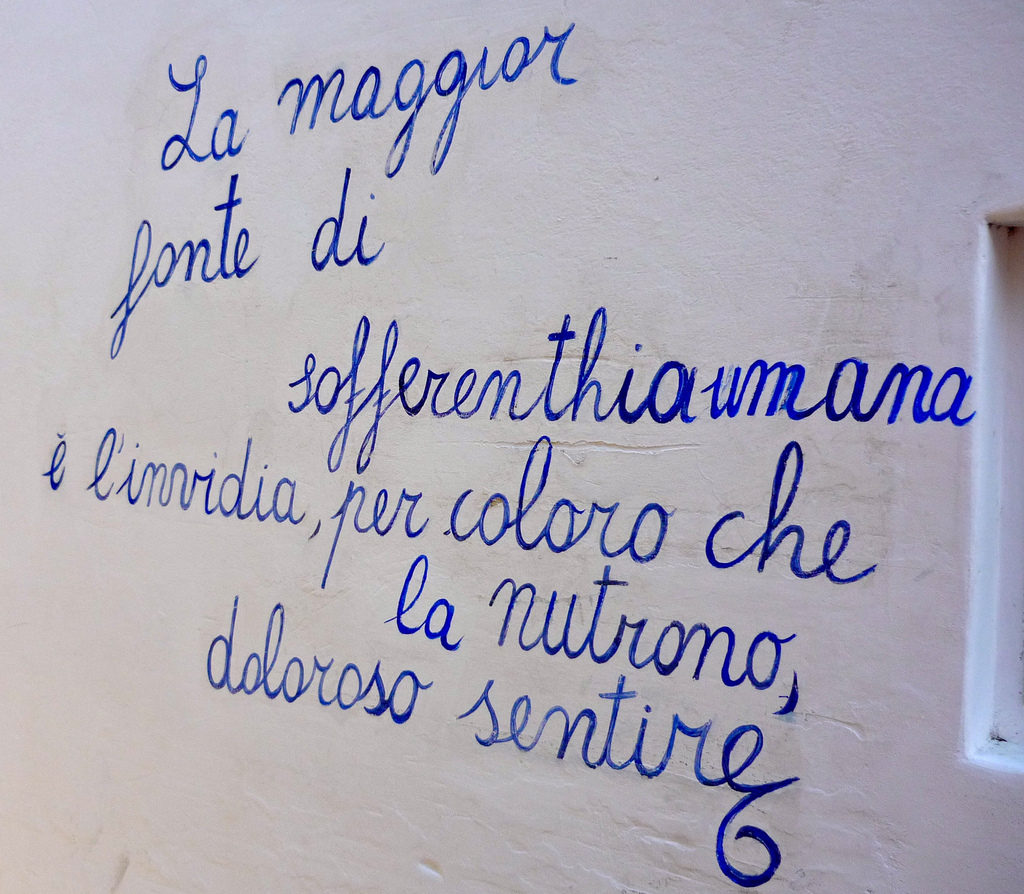 La maggior
fonte di
sofferenthia umana
è l'invidia, per coloro che
la nutrono,
doloroso sentire